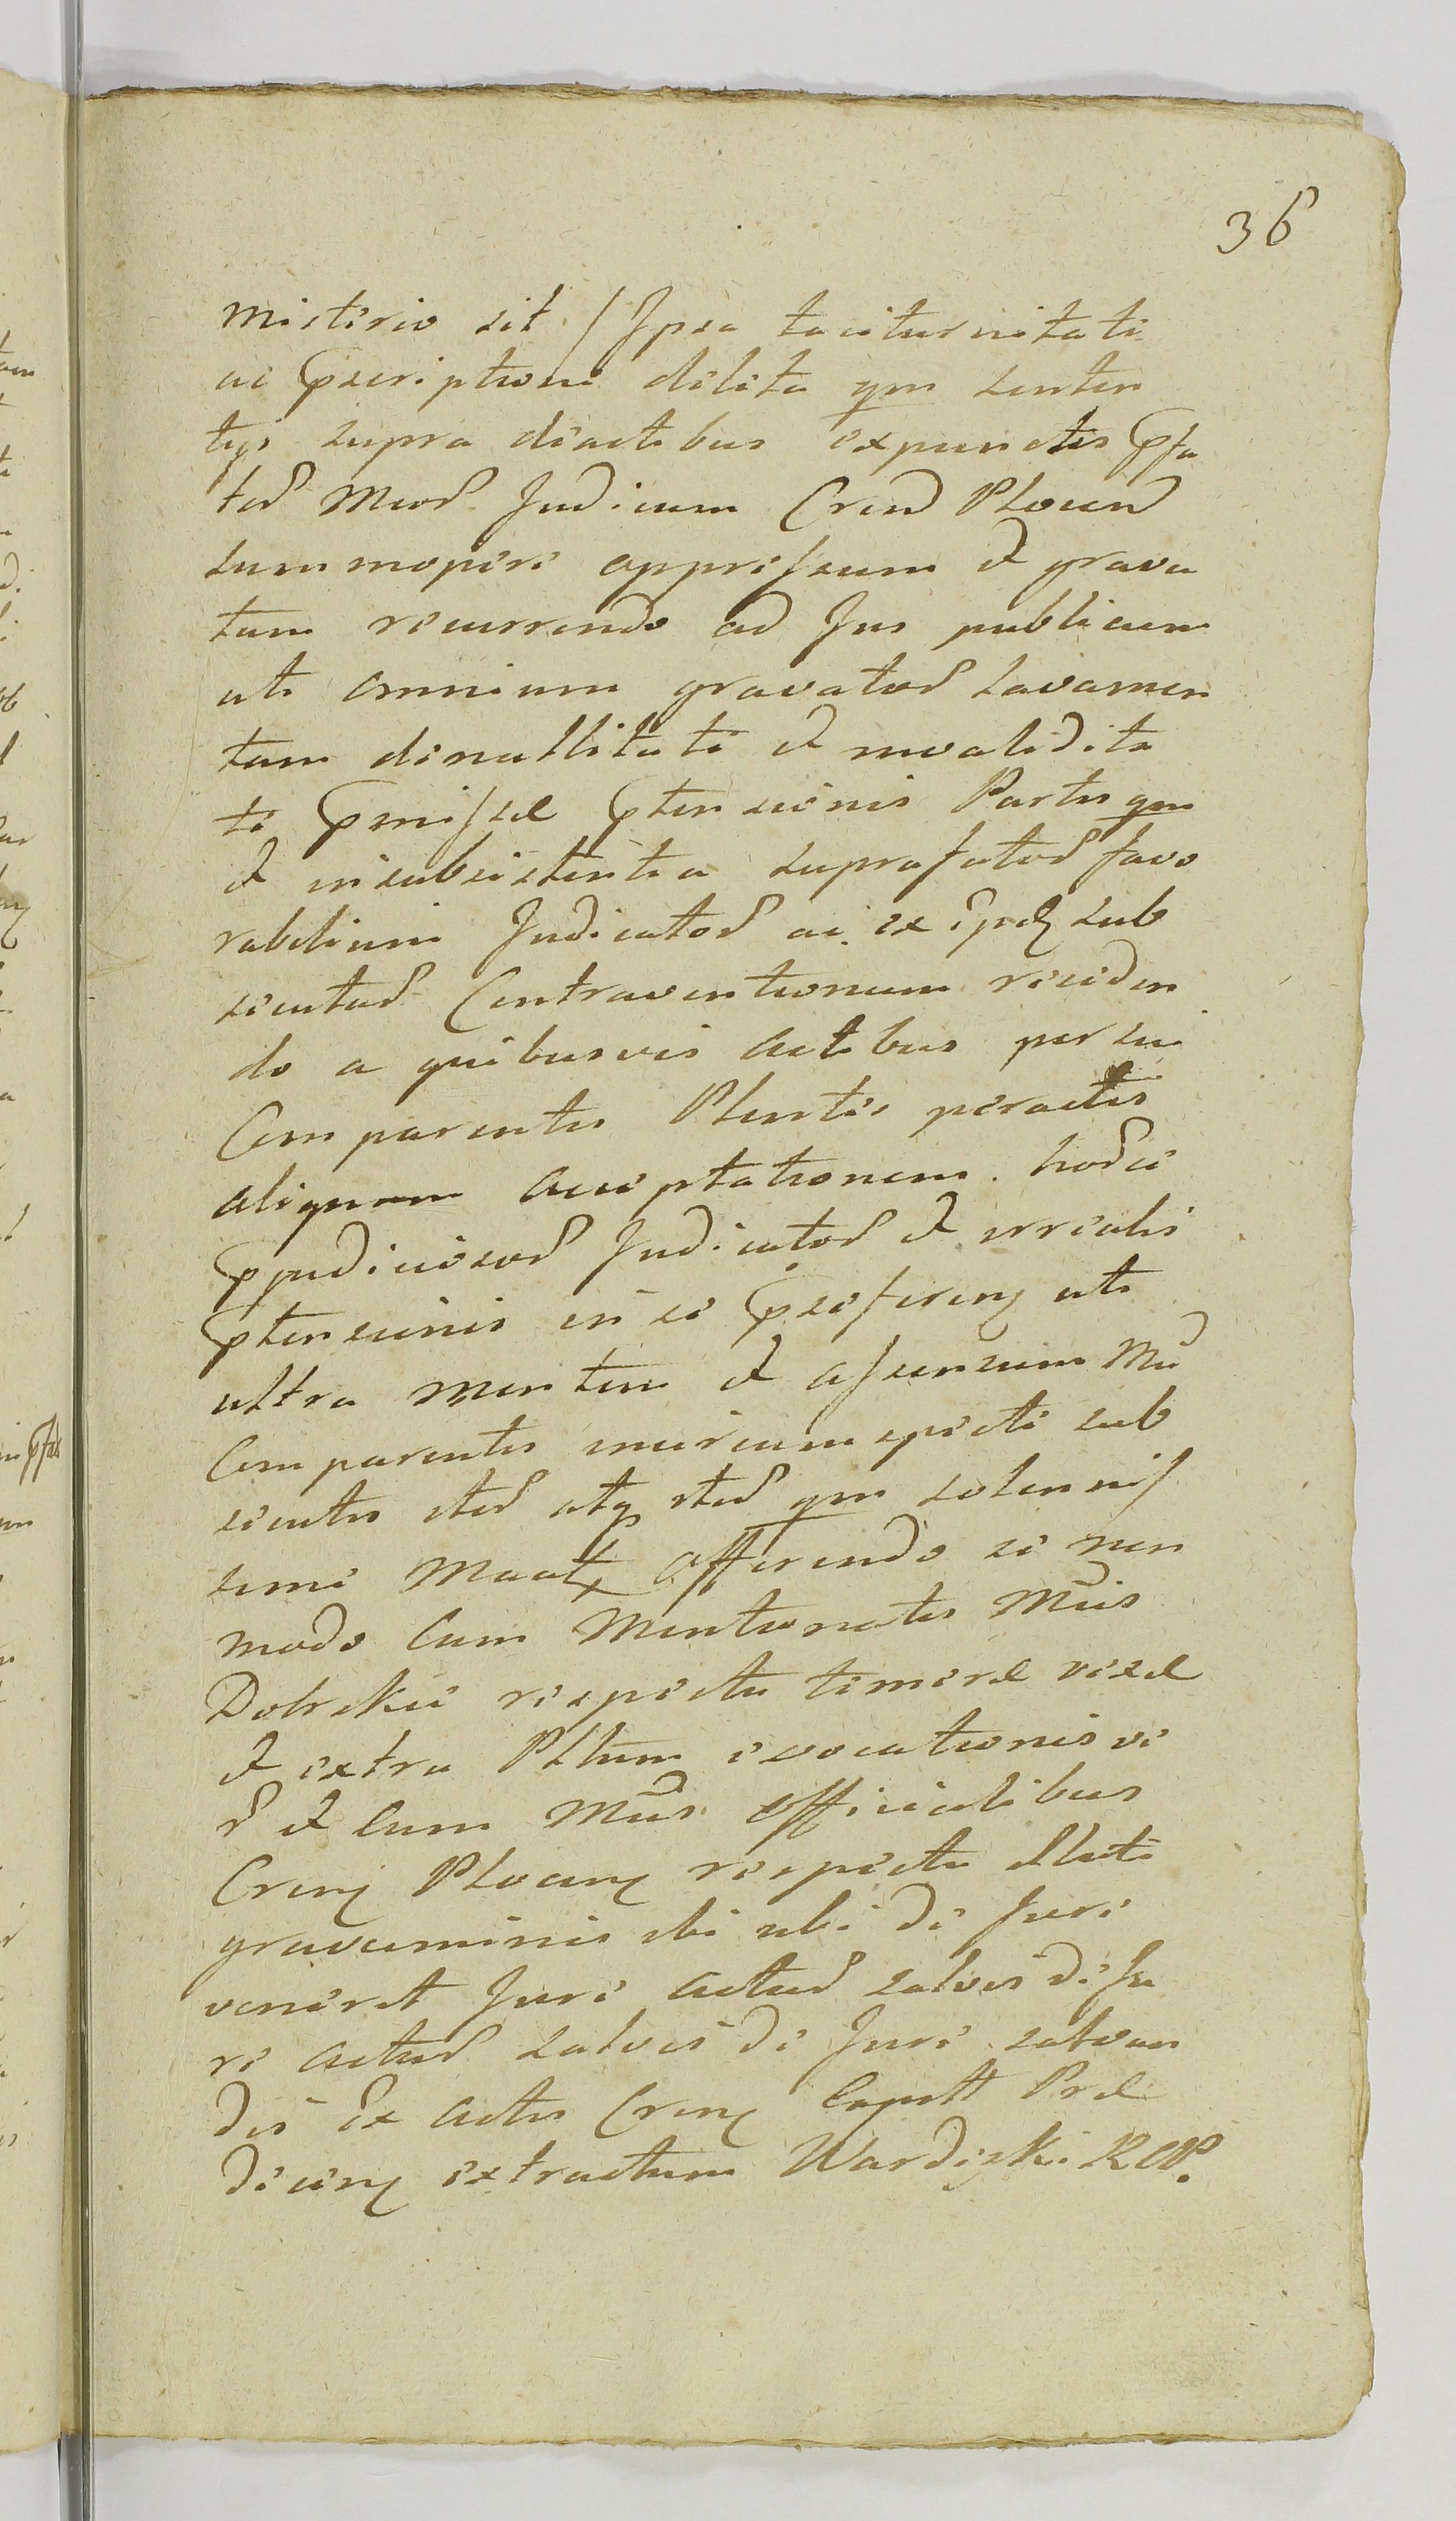 36
misterio sit / Ipsa taciturnitate
ac pscriptione delita qm senten
tys supra deactibus expunctis pfa
tor Mcor Judicum Crens Plocens
summopere oppressum et grava
tum recurrendo ad Jus publicum
uti omnium gravator Lavamen
tum denullitate et invalidita
te pmissae ptensionis Partis qm
et insubsistentia suprafator favo
rabilium Judicator ac ex ipsis sub
secutar Contraventionum receden
do a quibusvis actibus per sui
Comparentis Plenties peractis
aliquam acceptationem hocce
pjudiciosor Judicator et irrealis
ptensionis in se pseferens uti
ultra mentem et assensum Md
Comparentis inuriumspecte sub
secutis iter atq iter qm solennis
sime Manif offerendo se non
modo cum Mentionatis Mdis
Dobrskie respectu temerae visae
et extra Pltum evocationis ve
r et cum Mdis officialibus
Crens Plocens respectu illati
gravaminis ibi ubi de Jure
venerit Jure actur salvis de Ju
re actur salvis de Jure salvan
dis Ex actis Crens Capitt Prae
diens extractum Wardeski ROP.